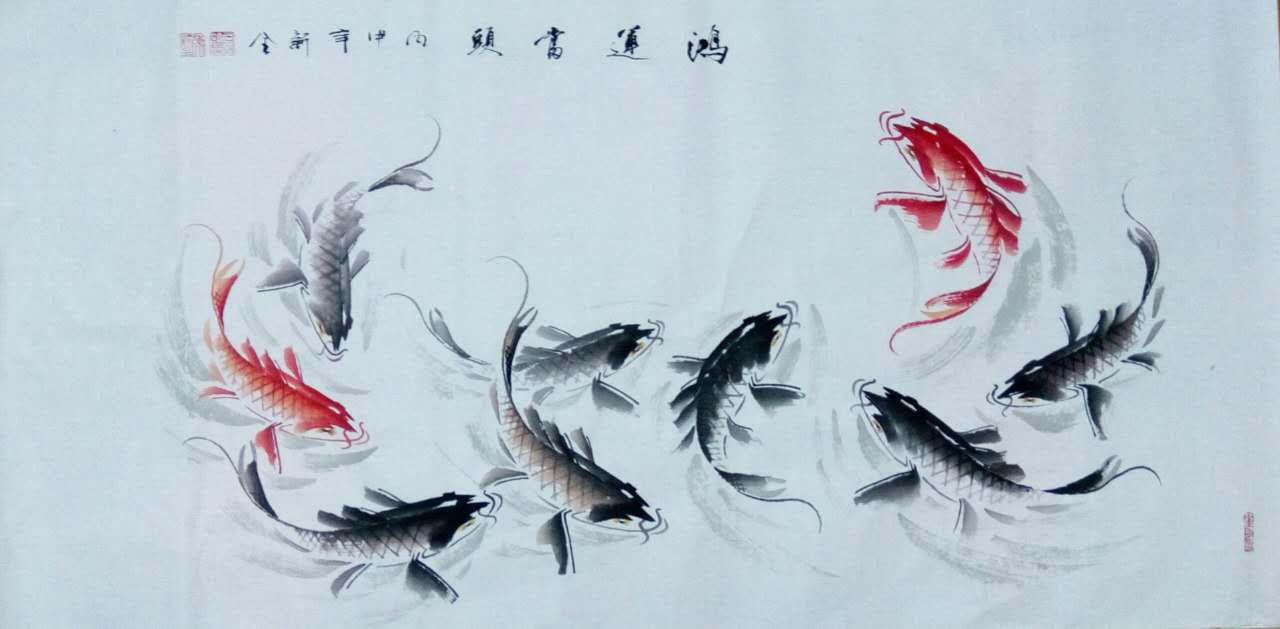 鴻運當頭 丙申年新全